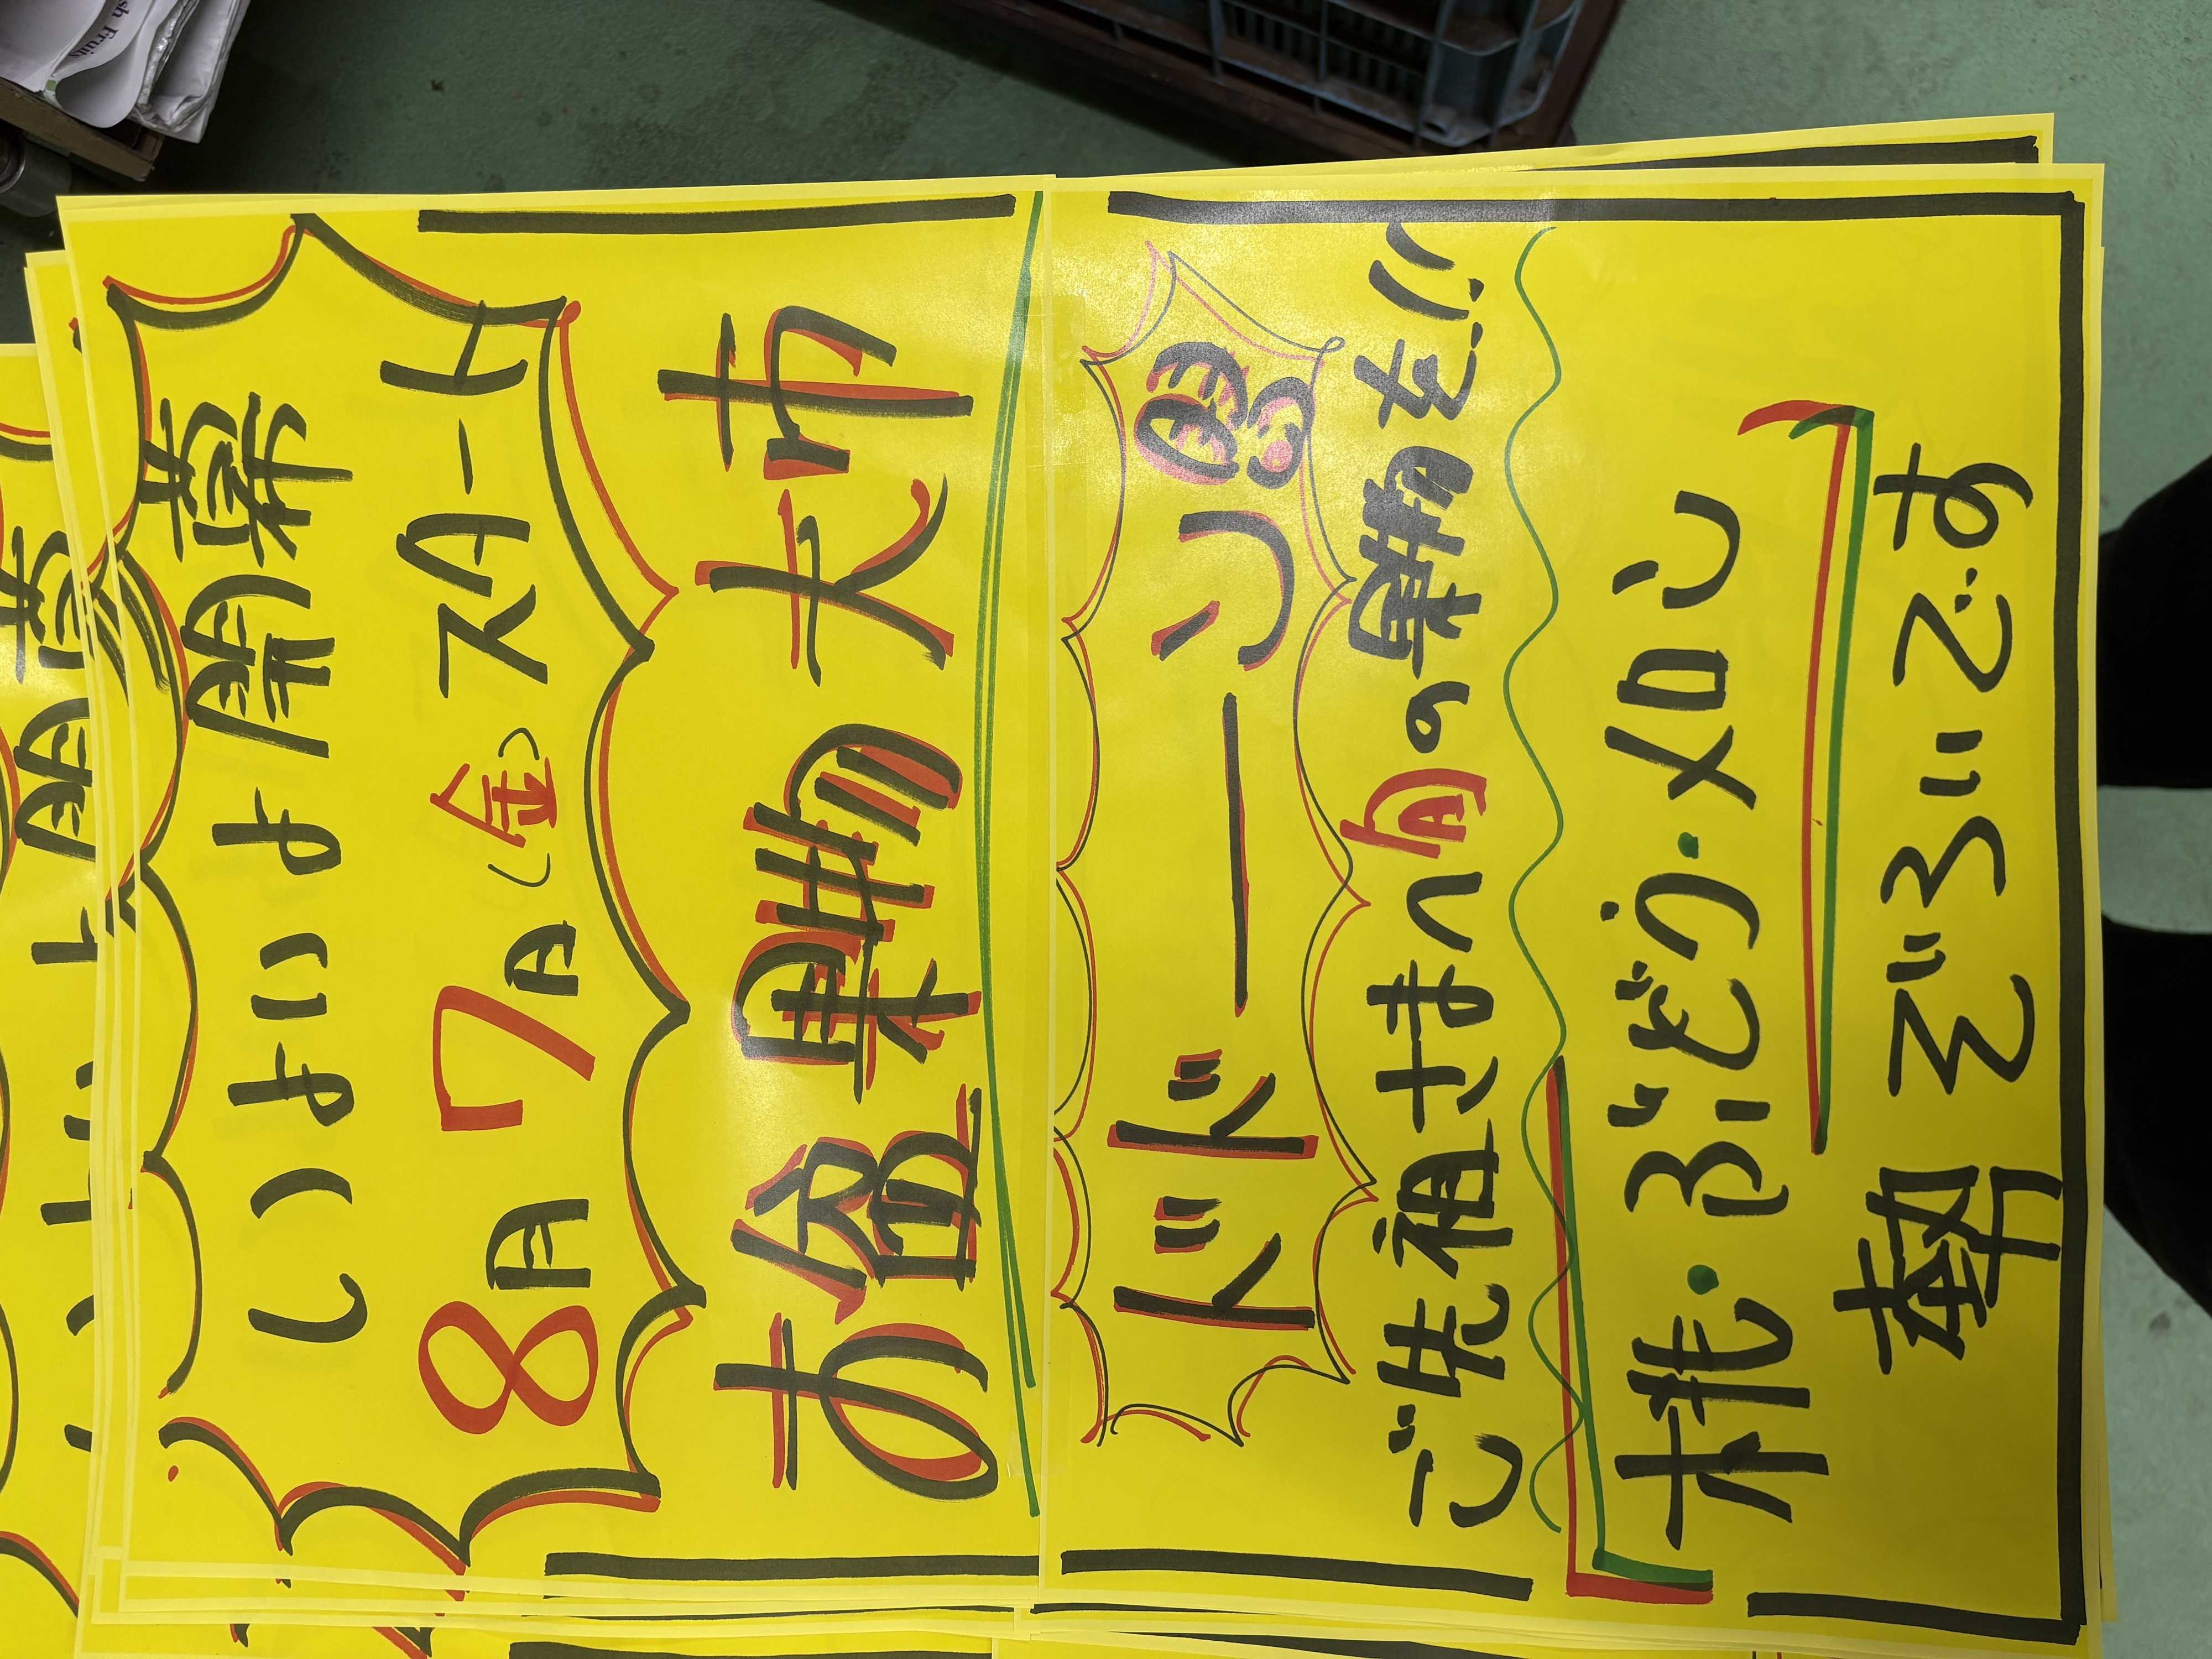 いよいよ開幕
8月7日(金)スタート
お盆果物大市
ドドーン
ご先祖さまへ旬の果物を!!
桃・ぶどう・メロン
勢ぞろいです